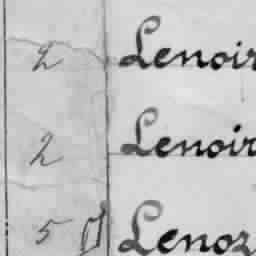 2 Lenoir
2 Lenoir
5 Lenoz